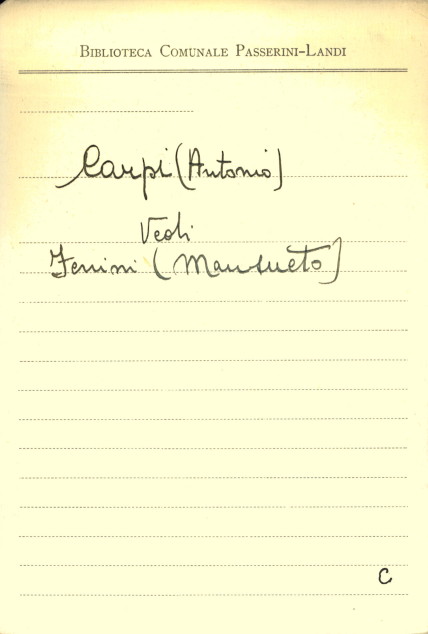 BIBLIOTECA COMUNALE PASSERINI-LANDI
Carpi (Antonio)
Vedi
(Mansueto)
C